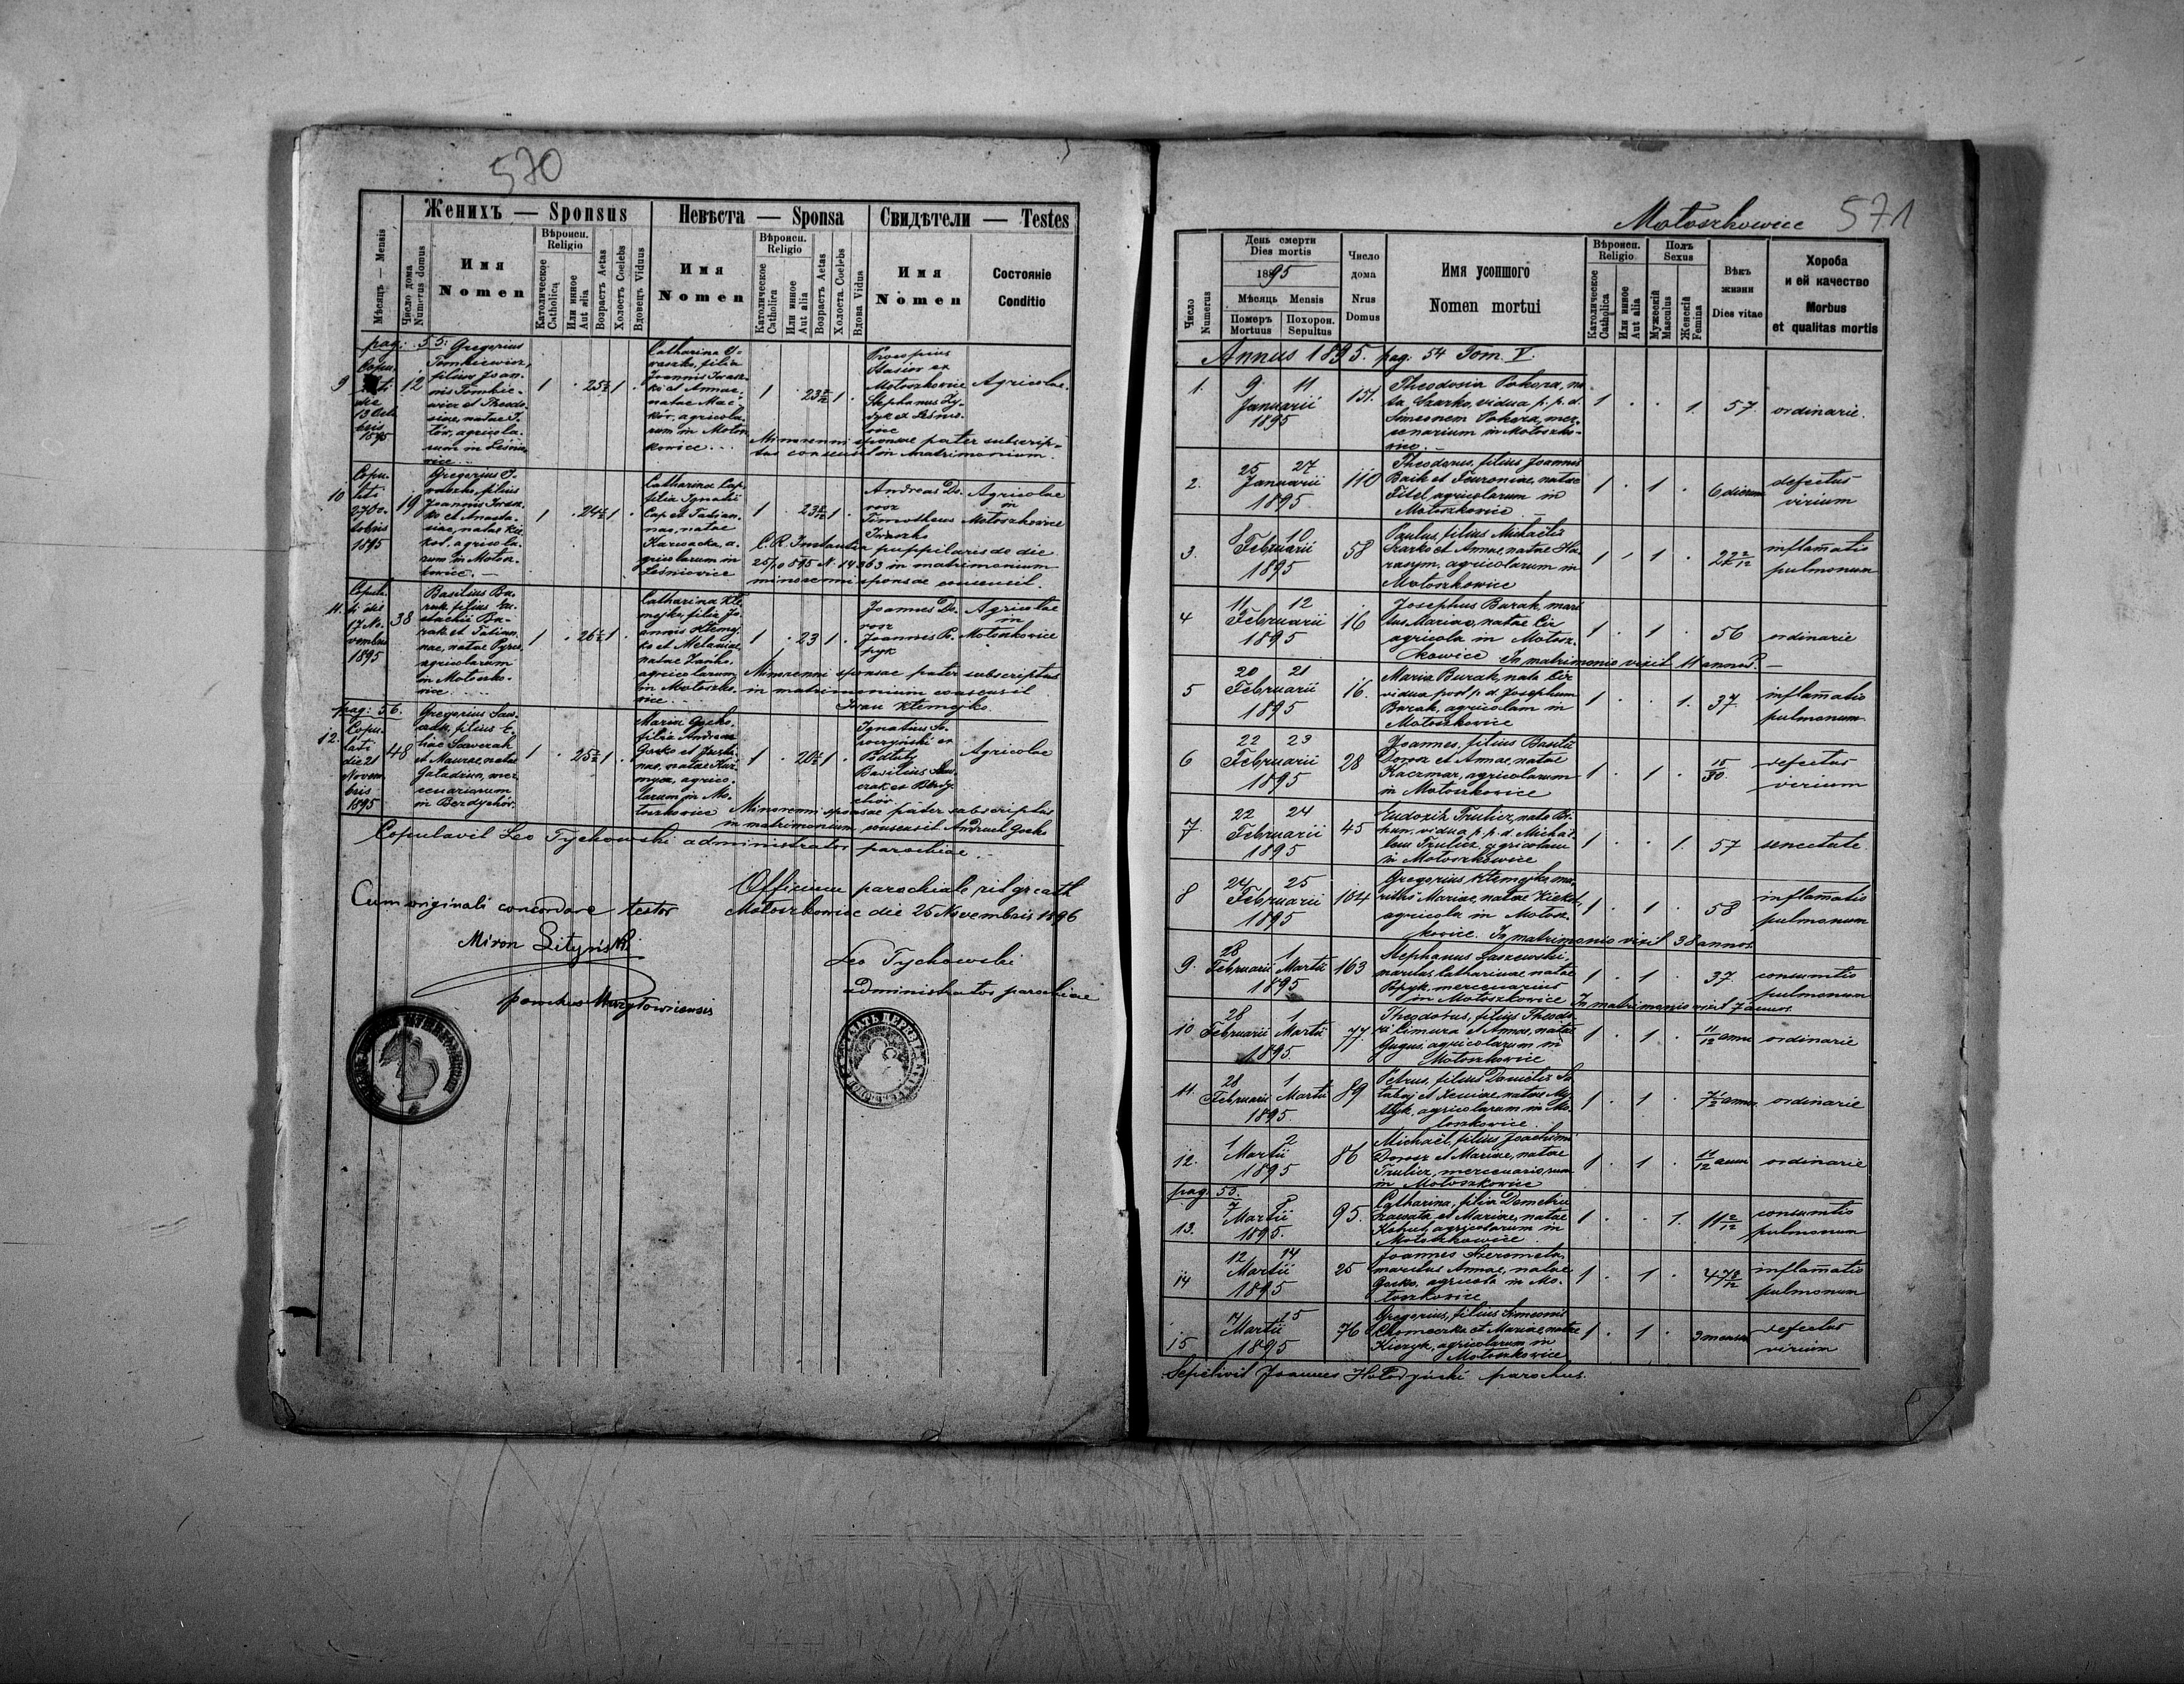 570
Женихъ — Sponsus
Невѣста — Sponsa
Свидѣтели — Testes
Мѣсяцъ — Mensis
Число дома
Numerus domus
Имя
Nomen
Вѣроисп.
Religio
Католическое
Catholica
Или инное
Aut alia
Возрастъ Aetas
Холостъ Coelebs
Вдовецъ Viduus
Имя
Nomen
Вѣроисп.
Religio
Католическое
Catholica
Или инное
Aut alia
Возрастъ Aetas
Холоста Coelebs
Вдова Vidua
Имя
Nomen
Состояніе
Conditio
pag: 55:
9
die
13 Octo
bris
1895
12
Gregorius
Tomkiewicz,
filius Joan-
nis Tomkie-
wicz et Theodo-
siae, natae
agricola-
rum in Leśnio-
wice
1 . 25 1 .
Catharina I-
waszko, filia
Joannis Iwasz-
ko et Annae
natae Mac-
kór, agricola-
rum in Motosz-
kowice
1 . 23 1 .
Procopius
Stasior ex
Motoszkowice
Stephanus
ex Leśnio-
wice
Agricolae.
Minorenni sponsae pater subscrip-
tus consensit in matrimonium.
10
Copu-
lati
27 Oc-
tobris
1895
19
Gregorius I-
waszko, filius
Joannis Iwasz-
ko et Anasta-
siae, natae
agricola-
rum in Motosz-
kowice. —
1 . 24 1 .
Catharina Cap
filia Ignatii
Cap et Tatian-
nae, natae
Karwacka, a-
gricolarum in
Leśniowice
1 . 23 1 .
Andreas Do-
rosz
Timotheus
Iwaszko
Agricolae
in
Motoszkowice
C. R. Instantia puppilaris do die
25/10 895 N. 14363 in matrimonium
minorenni sponsae consensit.
11.
Copula-
ti die
17 No-
vembris
1895
38
Basilius Bu-
rak filius Eu-
stachii Bu-
rak et Tatian-
nae, natae Pyrcz
agricolarum
in Motoszko-
wice.
1 . 26 1 .
Catharina Kle-
mejko, filia Jo-
annis Klemej-
ko et Melaniae,
natae
agricolarum
in Motoszko-
wice
1 . 23 1 .
Joannes Do-
rosz
Joannes Po-
pyk
Agricolae
in
Motoszkowice
Minorenni sponsae pater subscriptus
in matrimonium consensit
Iwan Klemejko.
pag: 56.
12.
Copu-
lati
die 21
Novem-
bris
1895
48
Gregorius Saw-
czak, filius E-
liae
et Mauzae, natae
mer-
cenariorum
in Berdychów.
1 . 25 1 .
Maria Gocko
filia Andreae
Gocko et Justi-
nae, natae
agrico-
larum in Mo-
toszkowice
1 . 20 1 .
Ignatius
ex
Podłuby
Basilius
ex Berdy-
chów.
Agricolae
Minorenni sponsae pater subscriptus
in matrimonium consensit Andruch Gocko
Copulavit Leo Tychowski administrator parochiae.
Cum originali concordare testor
Miron
parochus
Officium parochiale rit. gr. cath.
Motoszkowice die 25 Novembris 1896
Leo Tychowski
administrator parochiae
Motoszkowice
571
Число
Numerus
День смерти
Dies mortis
1895
Мѣсяць Mensis
Померъ
Mortuus
Похорон.
Sepultus
Число
дома
Nrus
Domus
Имя усопшого
Nomen mortui
Вѣроисп.
Religio
Католическое
Catholica
Или инное
Aut alia
Полъ
Sexus
Мужескій
Masculus
Женскій
Femina
Вѣкъ
жизни
Dies vitae
Хороба
и ей качество
Morbus
et qualitas mortis
Annus 1895. pag: 54 Tom. V.
1.
9 11
Januarii
1895
151.
Theodosia Pokora, na-
ta Szarko, vidua p. p. d.
Simeonem Pokora, mer-
cenarium in Motoszko-
wice
1 . . 1.
57.
ordinarie.
2.
25 27
Januarii
1895
110
Theodorus, filius Joannis
Baik et Feuroniae, natae
Fitel, agricolarum in
Motoszkowice
1 . 1 .
6 dierum
defectus
virium
3.
8 10
Februarii
1895
58
Paulus, filius Michaëlis
Szarko et Annae, natae Ha-
rasym, agricolarum in
Motoszkowice
1 . 1 .
22 2/12
inflamatio
pulmonum
4
11 12
Februarii
1895
16
Josephus Burak, mari-
tus Mariae, natae Cir
agricola in Motosz-
kowice In matrimonio vixit 11 annos. —
1 . 1 .
56
ordinarie
5
20 21
Februarii
1895
16.
Maria Burak, nata Cir
vidua post p. d. Josephum
Burak, agricolam in
Motoszkowice
1 . . 1.
37.
inflamatio
pulmonum
6
22 23
Februarii
1895
28
Joannes, filius Basilii
Dorosz et Annae, natae
Kaczmar, agricolarum
in Motoszkowice
1 . 1 .
15/30
defectus
virium
7.
22 24
Februarii
1895
45
Eudoxia Trulicz, nata
vidua p. p. d. Michaë-
lem Trulicz, agricolam
in Motoszkowice
1 . . 1.
57
senectute
8
24 25
Februarii
1895
104
Gregorius Klemejko ma-
ritus Mariae, natae
agricola in Motosz-
kowice. In matrimonio vixit 38 annos.
1 . 1 .
58
inflamatio
pulmonum
9.
28 1
Februarii Martii
1895
163
Stephanus Laszewski,
maritus Catharinae natae
mercenarius
in Motoszkowice In matrimonio vixit 7 annos.
1 . 1 .
37.
consumtio
pulmonum
10
28 1
Februarii Martii
1895.
77.
Theodorus, filius Theodo-
ri Cimura et Annae, natae
Gugus, agricolarum in
Motoszkowice
1 . 1 .
11/12 anni
ordinarie
11.
28 1
Februarii Martii
1895.
89
Petrus, filius Danielis
et Xeniae natae
agricolarum in Mo-
toszkowice.
1 . 1 .
7 1/2 annor.
ordinarie
12.
1 2
Martii
1895
86
Michaël, filius Joachimi
Dorosz et Mariae, natae
Trulicz, mercenariorum
in Motoszkowice
1 . 1 .
11/12 anni
ordinarie
pag. 55.
13.
7 8
Martii
1895.
95.
Catharina, filia Demetrii
et Mariae, natae
agricolarum in
Motoszkowice
1 . . 1.
11 2/12
consumtio
pulmonum
14
12 14
Martii
1895
25
Joannes Szeremeta,
maritus Annae, natae
Gocko, agricola in Mo-
toszkowice
1 . 1 .
inflamatio
pulmonum
15
15
Martii
1895
76
Gregorius, filius Simeonis
et Mariae, natae
agricolarum in
Motoszkowice
1 . 1 .
3 mensium
defectus
virium
Sepelivit Joannes Hołodyński parochus.